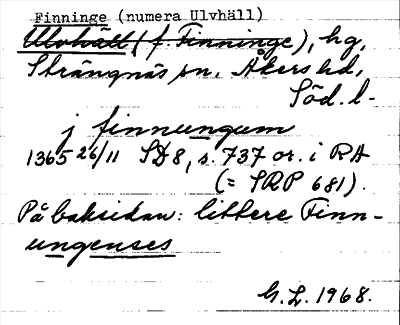 Finninge (numera Ulvhäll)
Ulvhäll (f. Finninge), hg,
Strängnäs sn, Åkers hd,
Söd. l.
j finnungum
1365 26/11 SD 8, s. 737 or. i RA
(= SRP 681).
På baksidan: littere Finn-
ungenses
G. L. 1968.